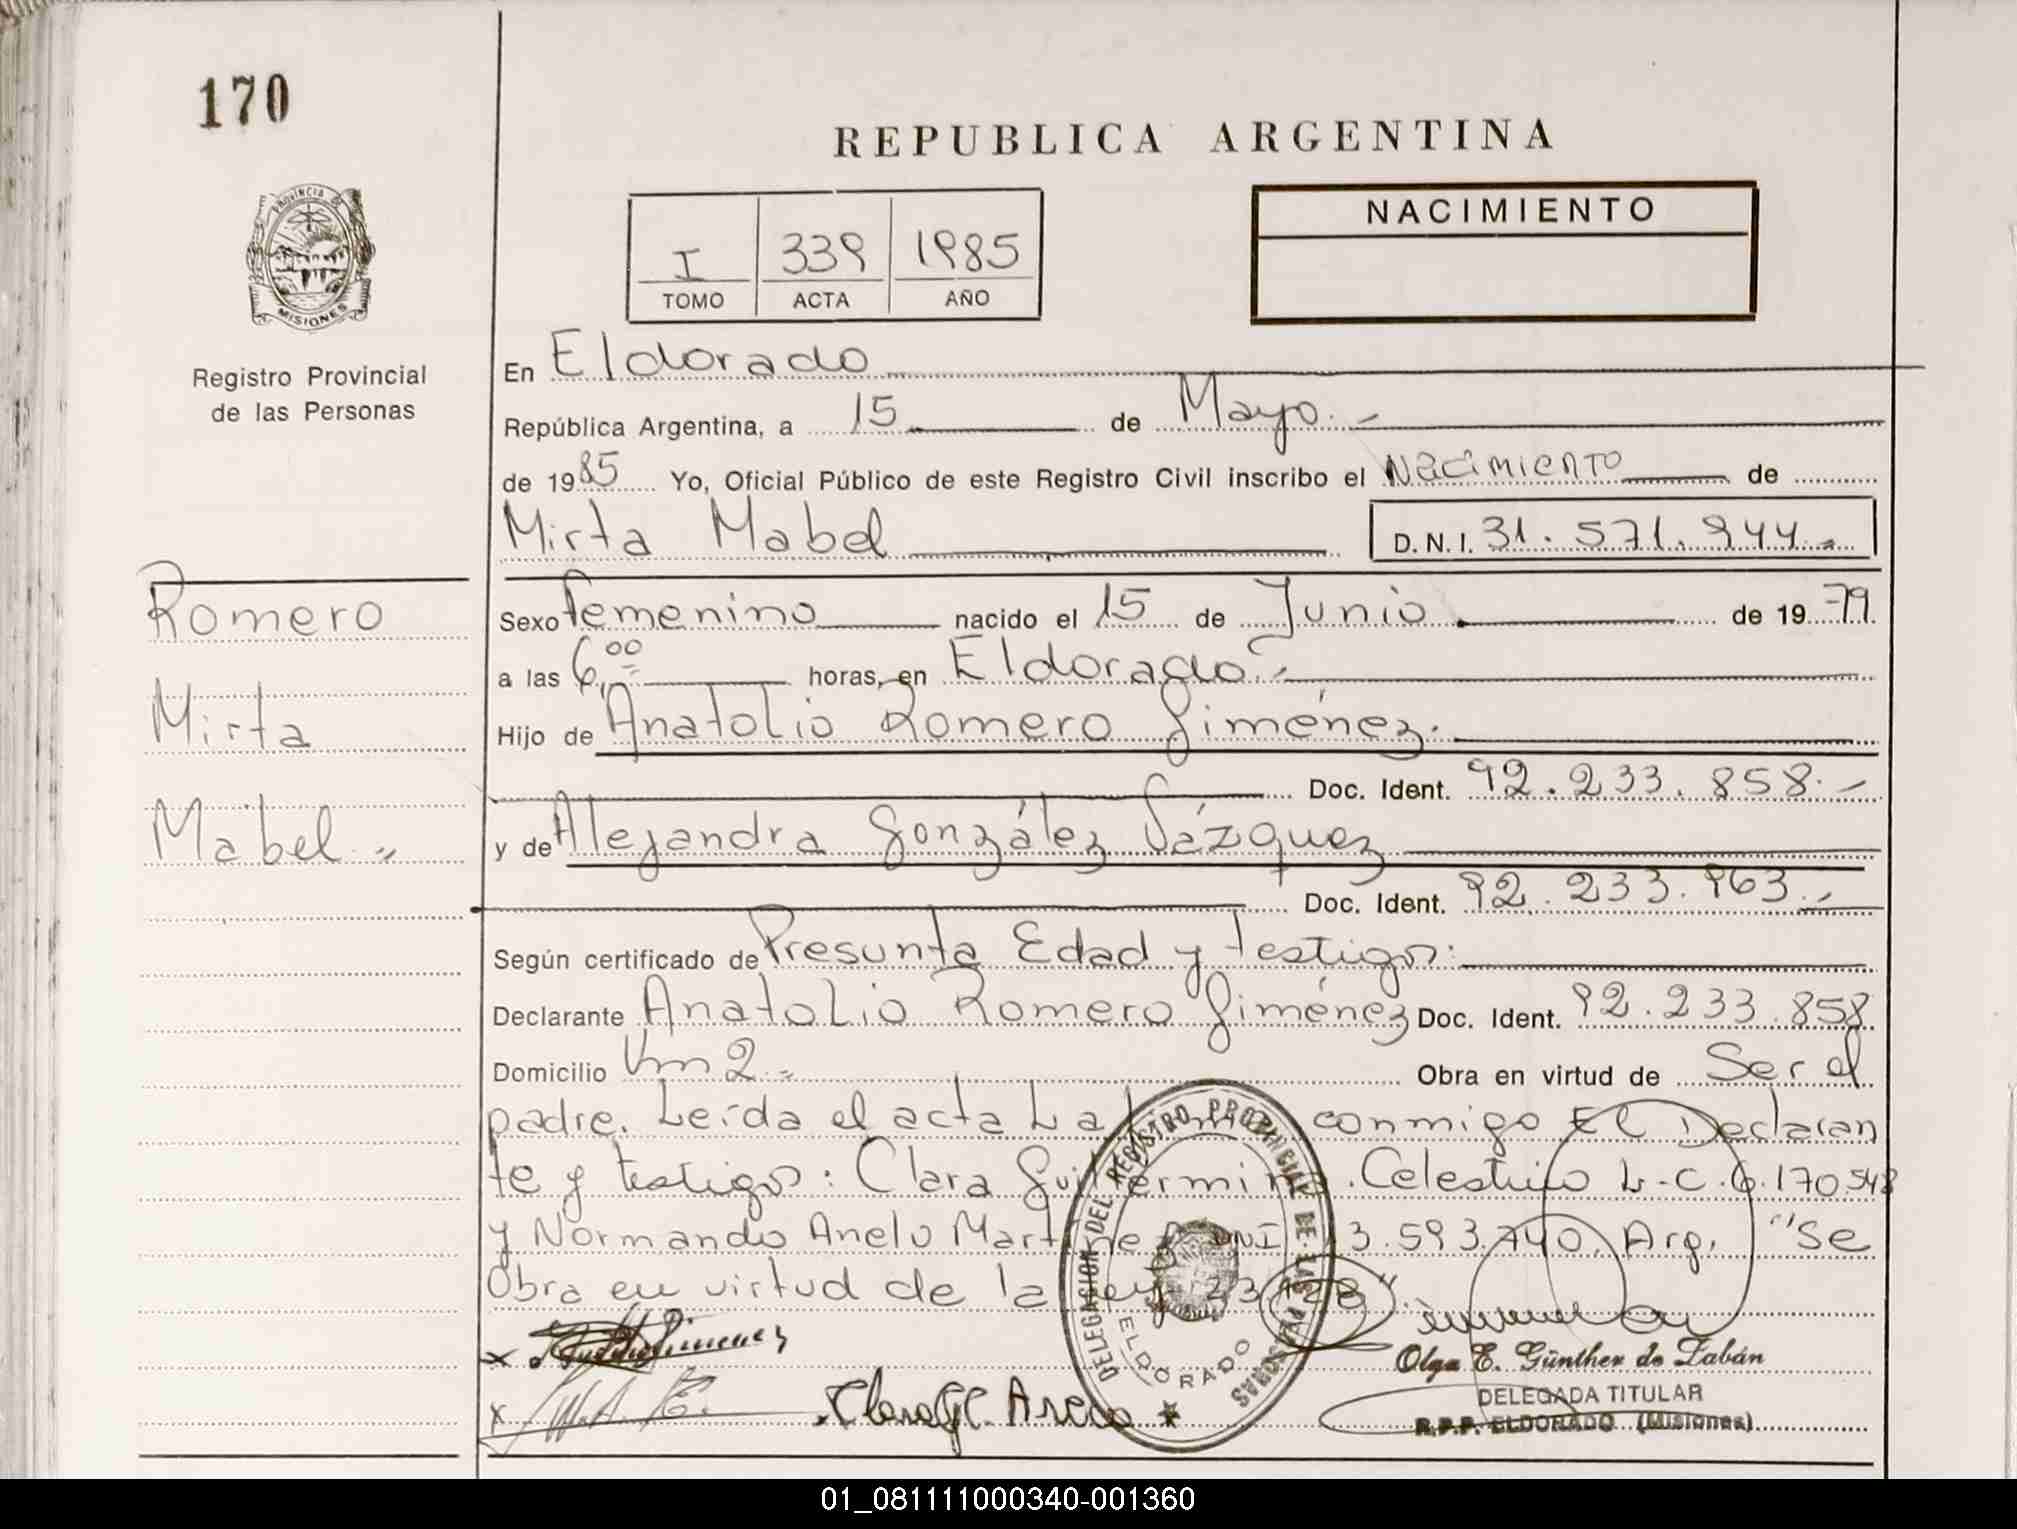 170
REPUBLICA ARGENTINA
PROVINCIA DE
MISIONES
Registro Provincial
de las Personas
I 339 1985
TOMO ACTA AÑO
NACIMIENTO
En Eldorado
República Argentina, a 15 de Mayo.-
de 1985 Yo, Oficial Público de este Registro Civil inscribo el Nacimiento de
Mirta Mabel D.N.I. 31.571.944.-
Romero
Mirta
Mabel.=
Sexo Femenino nacido el 15 de Junio de 1979
a las 6,00 horas, en Eldorado.-
Hijo de Anatolio Romero Giménez.
Doc. Ident. 92.233.858.-
y de Alejandra González Vázquez
Doc. Ident. 92.233.963.-
Según certificado de Presunta Edad y testigos:
Declarante Anatolio Romero Giménez Doc. Ident. 92.233.858
Domicilio Km 2.= Obra en virtud de Ser el
padre. Leída el acta La conmigo El Declaran
te y testigos: Clara Guillermina Celestino L.C.6.170.548
y Normando Anelo DNI 3.593.740, Arg. "Se
Obra en virtud de la ley
DELEGACION DEL REGISTRO PROVINCIAL DE LAS PERSONAS
ELDORADO
Olga E. Günther de Labán
DELEGADA TITULAR
R.P.P. ELDORADO (Misiones)
01_081111000340-001360